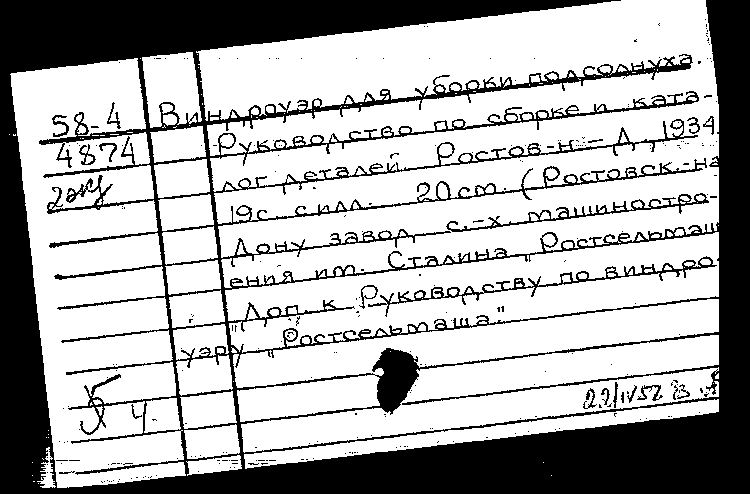 58-4 Виндроуэр для уборки подсолнуха.
4874 Руководство по сборке и ката-
2экз лог деталей. Ростов-н-Д, 1934
19с. с илл. 20см. (Ростовск.-на
Дону завод с.-х. машиностро-
ения им. Сталина „Ростсельмаш
„Доп. к Руководству по виндро-
уэру „Ростсельмаша".
Ч.
22/IV 52